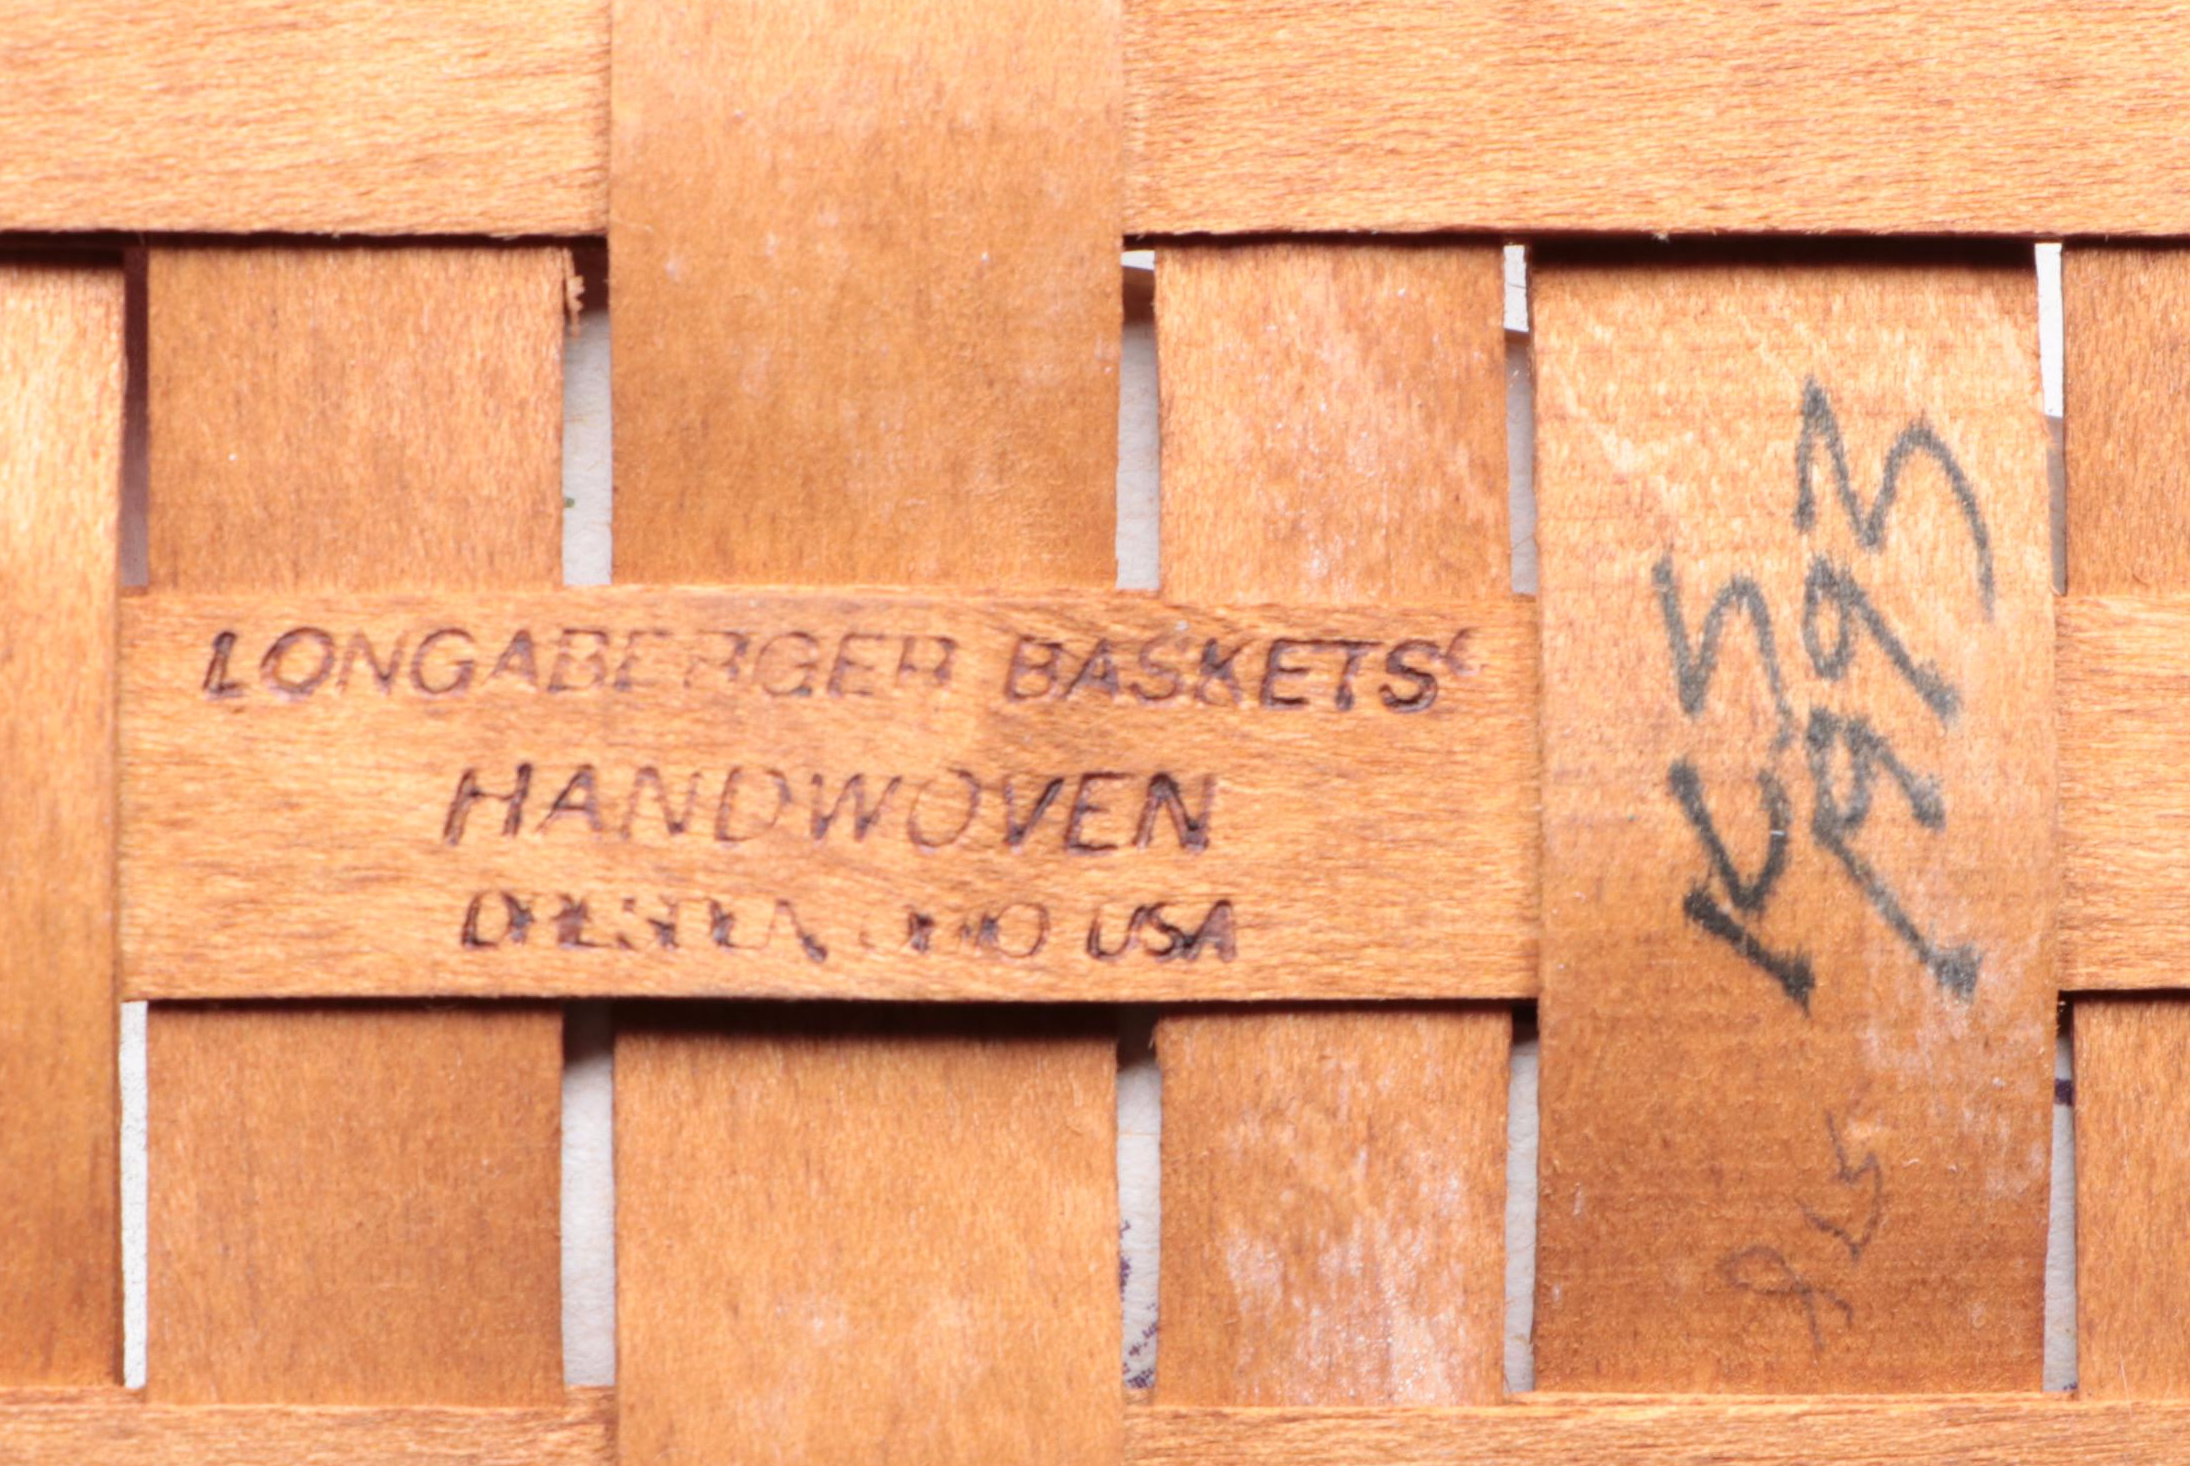 LONGABERGER BASKETS®
HANDWOVEN
DRESDEN OHIO USA
KS
1993